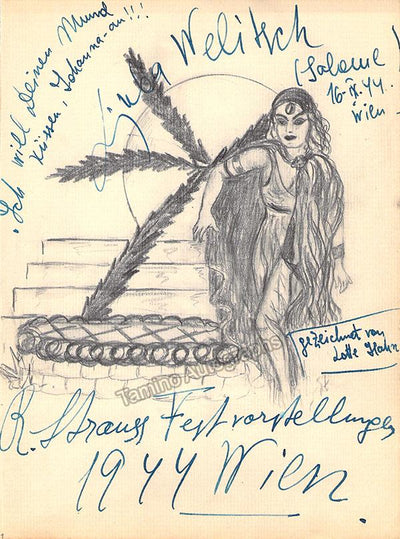 "Ich will deinen Mund
küssen, Johanna-an!!!
Ljuba Welitsch
(Salome)
16.X.44.
Wien
gezeichnet von
Lotte Hahn
Tamino Autographs
R. Strauss Festvorstellungen
1944 Wien.